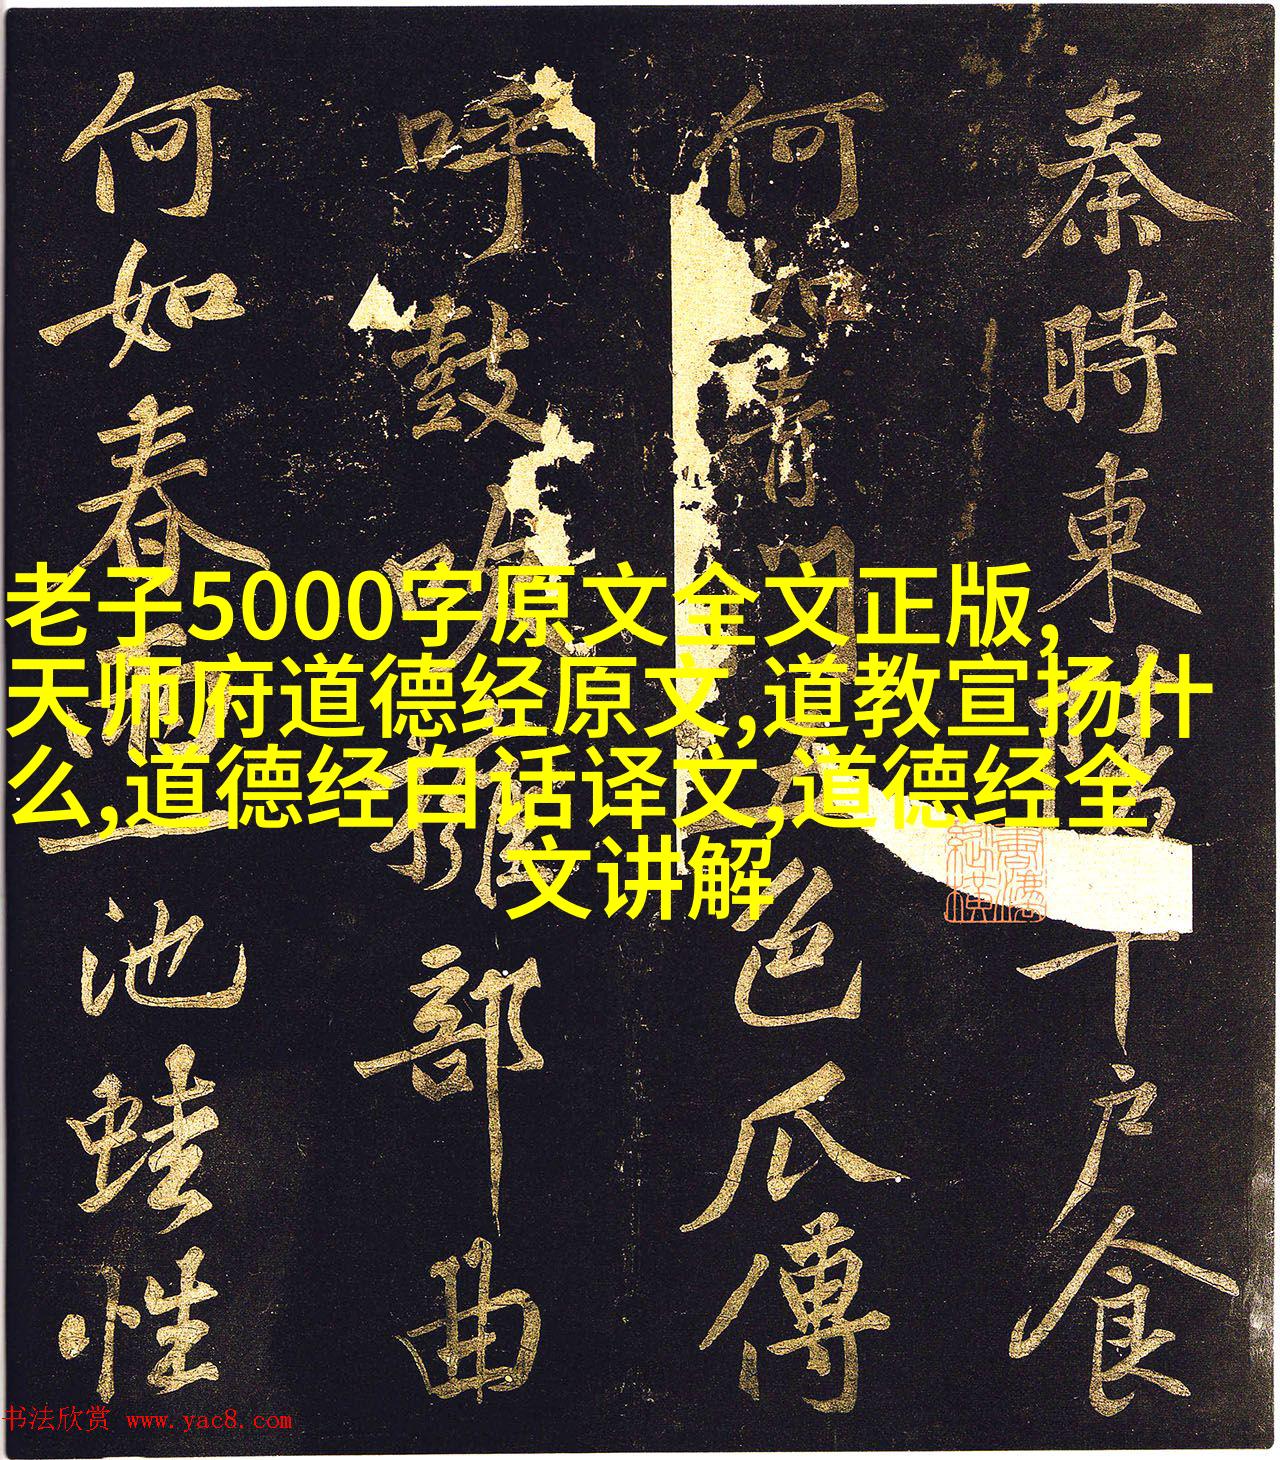 秦時東陵千戶食
何如青門五色瓜傳
呼鼓吹擁部曲
何如春雨一池蛙性
老子5000字原文全文正版,
天师府道德经原文,道教宣扬什
么,道德经白话译文,道德经全
文讲解
书法欣赏 www.yac8.com